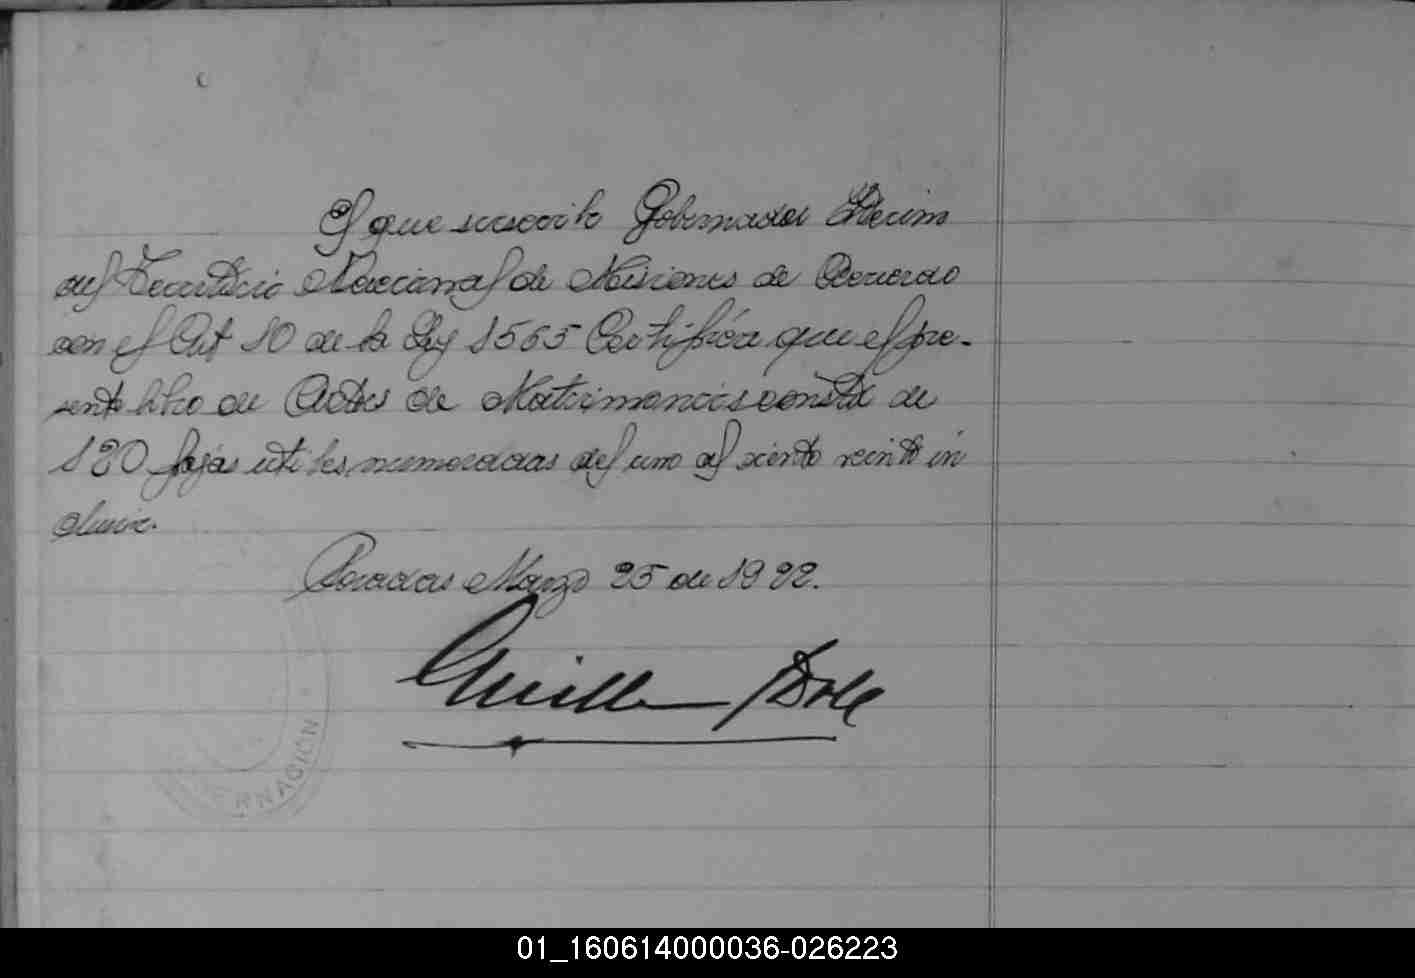 El que suscrito Gobernador Interin
del Territorio Nacional de Misiones de Acuerdo
con el Art 10 de la Ley 1565 Certifica que el pre-
sente libro de Actas de Matrimonios consta de
120 fojas utiles numeradas del uno al ciento veinte in
clusive.
Posadas Marzo 25 de 1922.
Guill
ERNACION
01_160614000036-026223